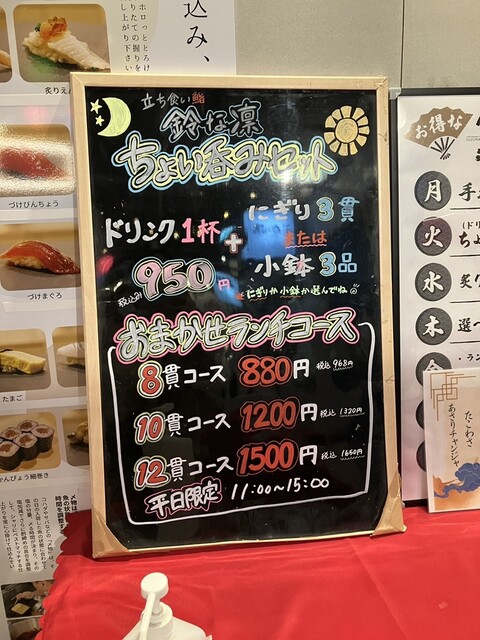 込み、
炙りえん
づけびんちょう
づけまぐろ
たまご
かんぴょう細巻き
立ち食い鮨
鈴な凛
ちょい呑みセット
ドリンク1杯
+
にぎり3貫
または
小鉢3品
税込み950円
にぎりか小鉢か選んでね
おまかせランチコース
8貫コース 880円 税込968円
10貫コース 1200円 税込1320円
12貫コース 1500円 税込1650円
平日限定 11:00~15:00
お得な
月
火
水
木
金
たこわさ
あさりチャンジャ